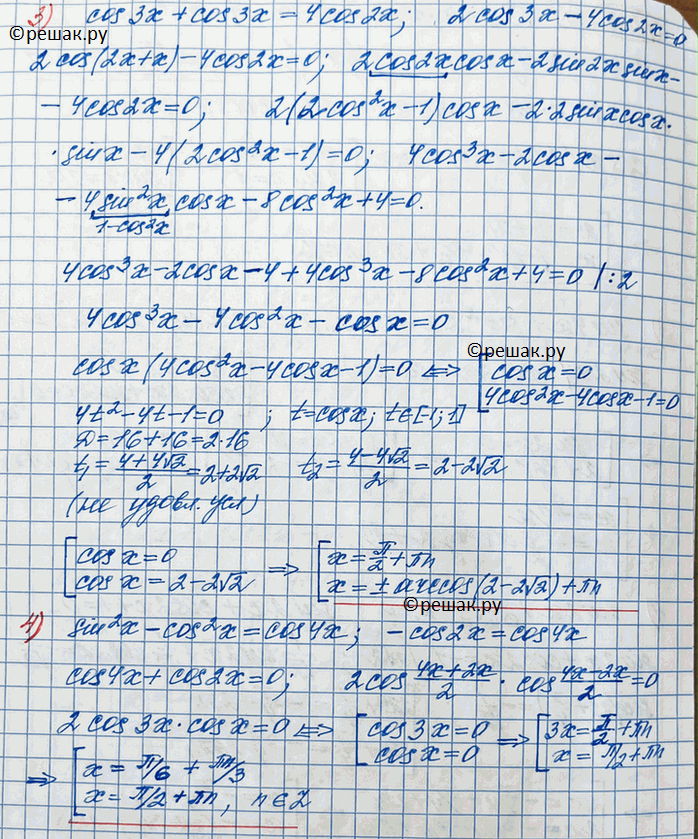 ©решак.ру
3) cos3x + cos3x = 4cos2x; 2cos3x − 4cos2x=0
2cos(2x+x) − 4cos2x=0; 2cos2x cosx − 2sin2x sinx −
− 4cos2x=0; 2(2cos²x−1)cosx − 2·2sinxcosx·
·sinx − 4(2cos²x−1)=0; 4cos³x − 2cosx −
− 4sin²x cosx − 8cos²x + 4=0.
1−cos²x
4cos³x − 2cosx − 4 + 4cos³x − 8cos²x + 4 = 0 |:2
4cos³x − 4cos²x − cosx = 0
©решак.ру
cosx(4cos²x − 4cosx − 1)=0 ⟺ [ cosx=0
4cos²x−4cosx−1=0
4t²−4t−1=0 ; t=cosx; t∈[−1;1]
D=16+16=2·16
t₁ = (4+4√2)/2 = 2+2√2 t₂ = (4−4√2)/2 = 2−2√2
(не удовл. усл)
[ cosx=0 ⟹ [ x = π/2 + πn
cosx = 2−2√2 x = ± arccos(2−2√2)+πn
©решак.ру
4) sin²x − cos²x = cos4x; −cos2x = cos4x
cos4x + cos2x = 0; 2cos (4x+2x)/2 · cos (4x−2x)/2 = 0
2cos3x·cosx=0 ⟺ [ cos3x=0 ⟹ [ 3x = π/2 + πn
cosx=0 x = π/2 + πn
⟹ [ x = π/6 + πn/3
x = π/2 + πn, n∈Z